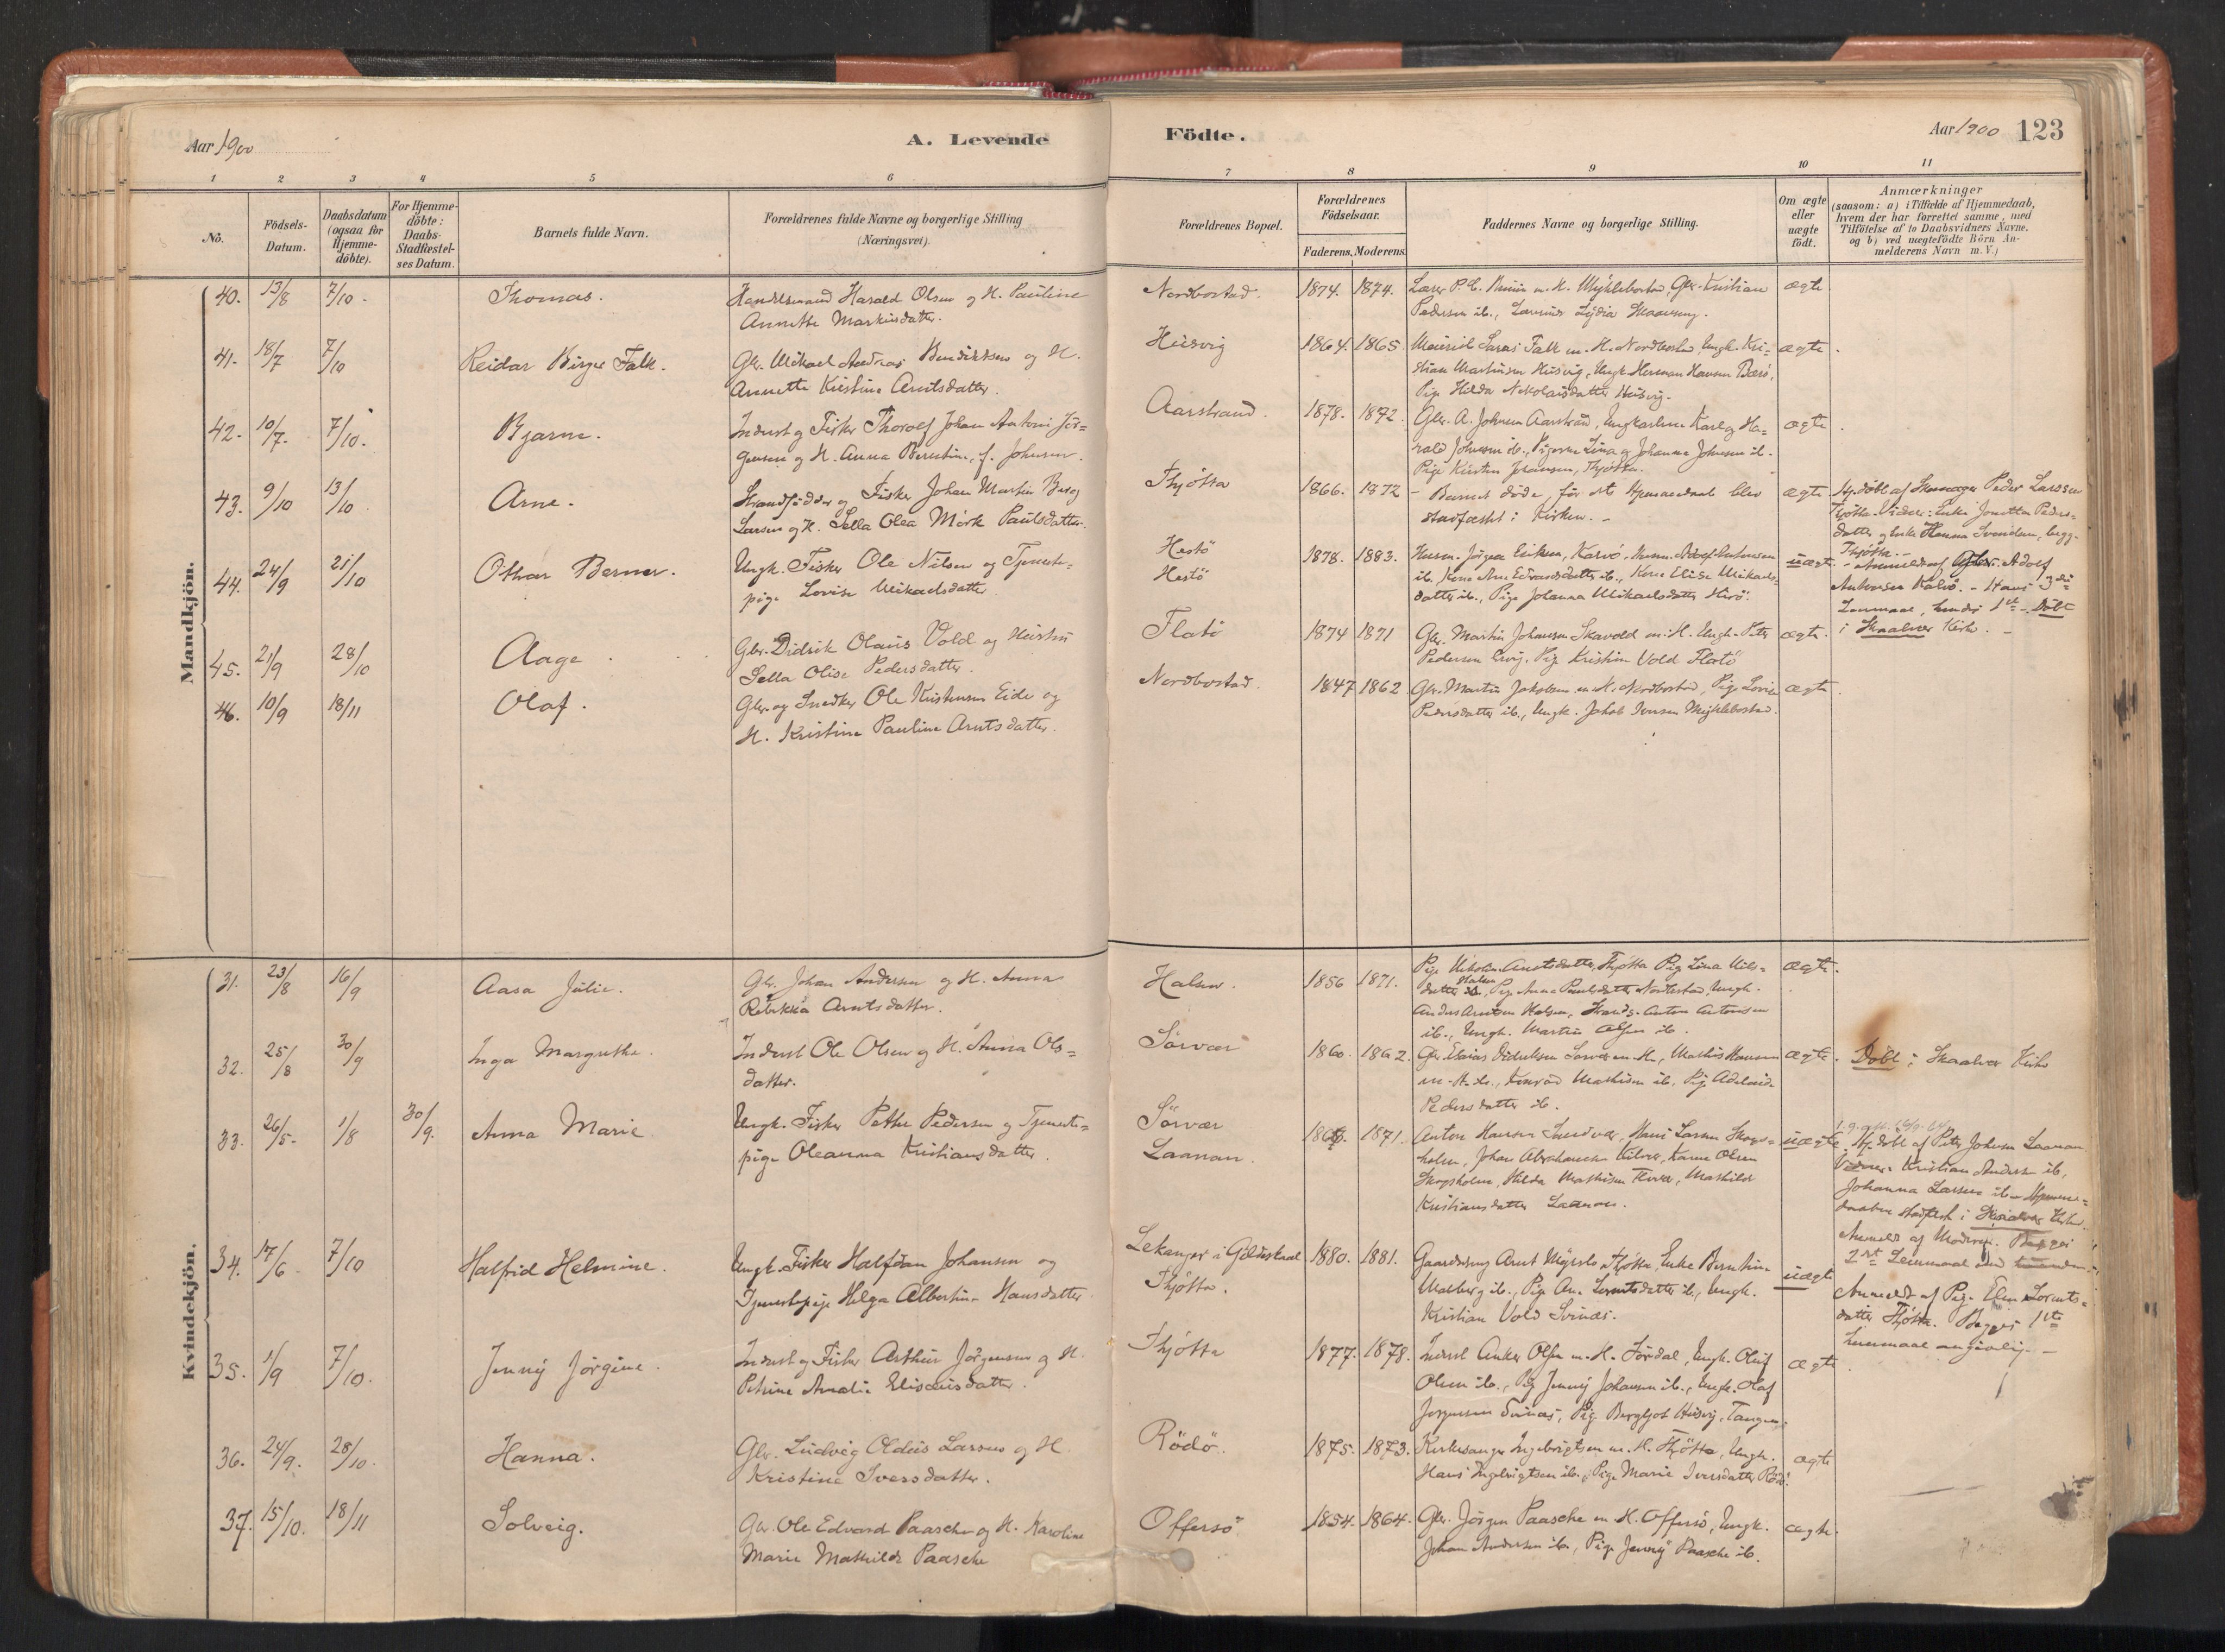 Aar 1900
A. Levende
Födte.
Aar 1900 123
1 2 3 4 5 6 7 8 9 10 11
No.
Födsels-
Datum.
Daabsdatum
(ogsaa for
Hjemme-
döbte).
For Hjemme-
döbte:
Daabs-
Stadfæstel-
ses Datum.
Barnets fulde Navn.
Forældrenes fulde Navne og borgerlige Stilling
(Næringsvei).
Forældrenes Bopæl.
Forældrenes
Födselsaar.
Faderens. Moderens.
Faddernes Navne og borgerlige Stilling.
Om ægte
eller
uægte
födt.
Anmærkninger
(saasom: a) i Tilfælde af Hjemmedaab,
hvem der har forrettet samme, med
Tilföielse af to Daabsvidners Navne,
og b) ved uægtefödte Börn An-
melderens Navn m.V.)
Mandkjön.
40. 13/8 7/10 Thomas.
Handelsmand Harald Olsen og H. Pauline
Annette Markusdatter.
Nordbostad. 1874. 1874.
Kristian
Pedersen ib., Lydia
ægte
41. 18/7 7/10 Reidar Birger Falk.
Gbr. Mikael Andreas Bendiktsen og H.
Annette Kristine Arntsdatter.
Husvig 1864. 1865.
Falk m. H. Nordbostad, Ungk. Kri-
stian Martinsen Husvig, Ungk. Herman Hansen
Pige Hilda Nikolaisdatter Husvig.
ægte
42. 10/7 7/10. Bjarne.
Inderst og Fisker Thorolf Johan Antoni Jör-
gensen og H. Anna Berntine, f. Johnsen.
Aarstrand. 1878. 1872.
Gbr. A. Johnsen Aarstrand, Ungkarlene Karl og Ha-
rald Johnsen ib., Pigerne Lina og Johanna Johnsen ib.
Pige Kirsten Thjøtta.
ægte
43. 9/10 13/10 Arne.
Strandsidder og Fisker Johan Martin Berg
Larsen og H. Sella Olea Mörk Paulsdatter.
Thjøtta 1866. 1872
- Barnet döde, før dets Hjemmedaab blev
stadfæstet i Kirken. -
ægte
Hj.döbt af Skomager Peder Larsen
Thjøtta. Vidner: Enke
datter og Enke Hanna Svendsen, begge
Thjøtta. -
44. 24/9 21/10 Othar Berner.
Ungk. Fisker Ole Nilsen og Tjeneste-
pige Lovise Mikaelsdatter
Hestö
Hestö
1878. 1883.
Husm. Jörgen Eriksen, Husm. Adolf Antonsen
ib., Kone Ane Edvardsdatter ib., Kone Elise Mikaels-
datter ib., Pige Johanna Mikaelsdatter
uægte
- Anmeldt af Adolf
Antonsen - Hans 3die
Leiermaal, hendes 1ste. - Döbt
i Skaalvær Kirke. -
45. 21/9 28/10 Aage
Gbr. Didrik Olaus Vold og Hustru
Sella Olise Pedersdatter
Flatö 1874 1871
Gbr. Martin Johansen Skavold m. H. Ungk. Peter
Pedersen Pige Kristine Vold Flatö
ægte.
46. 10/9 18/11 Olaf.
Gbr. og Snedker Ole Kristensen Eide og
H. Kristine Pauline Arntsdatter.
Nordbostad. 1847 1862
Gbr. Martin Jakobsen m. H. Nordbostad, Pige Lovise
Pedersdatter ib., Ungk. Jakob Iversen Myklebostad.
ægte.
Kvindekjön.
31. 23/8 16/9 Aasa Julie.
Gbr. Johan Andersen og H. Anna
Rebekka Arntsdatter.
Halsen. 1856 1871.
Pige Nikoline Arntsdatter, Thjøtta Pige Lina Nils-
datter Halsen, Pige Anna Paulsdatter Nordbostad, Ungk.
Anders Arntsen Halsen, Strands. Anton Antonsen
ib., Ungk. Martin Olsen ib.
ægte.
32. 25/8 30/9 Inga Margrethe.
Inderst Ole Olsen og H. Anna Ols-
datter.
Sörvær 1860. 1862.
Gbr. Esaias Didriksen Sörvær m. H., Mathias Hansen
m. H. ib., Konrad Mathisen ib., Pige Adelaide
Pedersdatter ib.
ægte.
Döbt i Skaalvær Kirke
33. 26/5 1/8 30/9. Anna Marie
Ungk. Fisker Petter Pedersen og Tjeneste-
pige Oleanna Kristiansdatter.
Sörvær
Laanan.
1871.
Anton Hansen Hans Larsen Skogs-
holm, Johan Abrahamsen Karen Olsen
Skogsholm, Hilda Mathisen Mathilde
Kristiansdatter Laanan.
uægte
Hj.döbt af Peter Johnsen Laanan
Vidner: Kristian Andersen ib.
Johanna Larsen ib. - Hjemme-
daaben stadfæst. i Skaalvær Kirke.
Anmeldt af Moderen. Begges
2det Leiermaal
34. 17/6 7/10 Halfrid Helmine.
Ungk. Fisker Halfdan Johansen og
Tjenestepige Helga Albertine Hansdatter
Lekanger i Gildeskaal
Thjøtta.
1880. 1881.
Arnt Thjøtta, Enke Berntine
ib., Pige Ane Lorentsdatter ib., Ungk.
Kristian Vold Svinæs.
uægte
Anmeldt af Pige Elen Lorents-
datter Thjøtta. Begges 1ste
Leiermaal angivelig. -
35. 1/9 7/10. Jenny Jörgine.
Inderst og Fisker Arthur Jörgensen og H.
Petrine Amalie Elisæusdatter.
Thjøtta 1877. 1878.
Inderst Anker Olsen m. H. Ungk. Oluf
Olsen ib., Pige Jenny Johansen ib., Ungk. Olaf
Jörgensen Svinæs, Pige Bergljot Husby, Tangen.
ægte
36. 24/9. 28/10. Hanna.
Gbr. Ludvig Oldus Larsen og H.
Kristine Iversdatter.
Rödö. 1875. 1873.
Kirkesanger Ingebrigtsen m. H. Thjøtta, Ungk.
Hans Ingebrigtsen ib., Pige Marie Iversdatter Rödö.
ægte
37. 15/10. 18/11 Solveig.
Gbr. Ole Edvard Paasche og H. Karoline
Marie Mathilde Paasche
Offersö 1854. 1864.
Gbr. Jörgen Paasche m H. Offersö, Ungk.
Johan Andersen ib., Pige Jenny Paasche ib.
ægte.